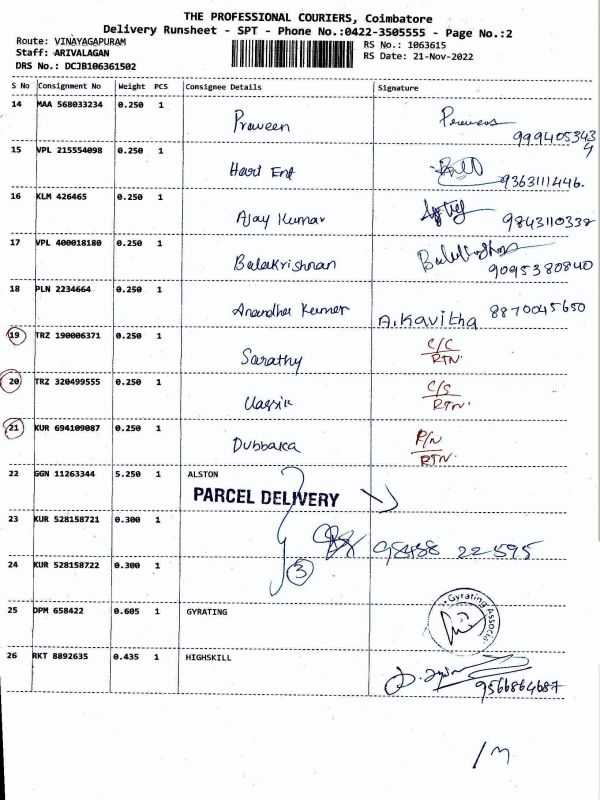 THE PROFESSIONAL COURIERS, Coimbatore
Delivery Runsheet - SPT - Phone No.:0422-3505555 - Page No.:2
Route: VINAYAGAPURAM
Staff: ARIVALAGAN
DRS No.: DCJB106361502
RS No.: 1063615
RS Date: 21-Nov-2022
S No Consignment No Weight PCS Consignee Details Signature
14 MAA 568033234 0.250 1 Praveen
9994053434
15 VPL 215554098 0.250 1 Hari Ent
9363111446.
16 KLM 426465 0.250 1 Ajay Kumar
9843110338
17 VPL 400018180 0.250 1 Balakrishnan
9095380840
18 PLN 2234664 0.250 1 Anandha Kumar A.Kavitha 8870045650
19 TRZ 190006371 0.250 1 Sarathy C/C
RTN.
20 TRZ 320499555 0.250 1 C/S
RTN.
21 KUR 694109087 0.250 1 Dubbaka P/N
RTN.
22 GGN 11263344 5.250 1 ALSTON
PARCEL DELIVERY
23 KUR 528158721 0.300 1 95488 22595
24 KUR 528158722 0.300 1 3
25 DPM 658422 0.605 1 GYRATING Gyrating Associ
26 RKT 8892635 0.435 1 HIGHSKILL
9566864687